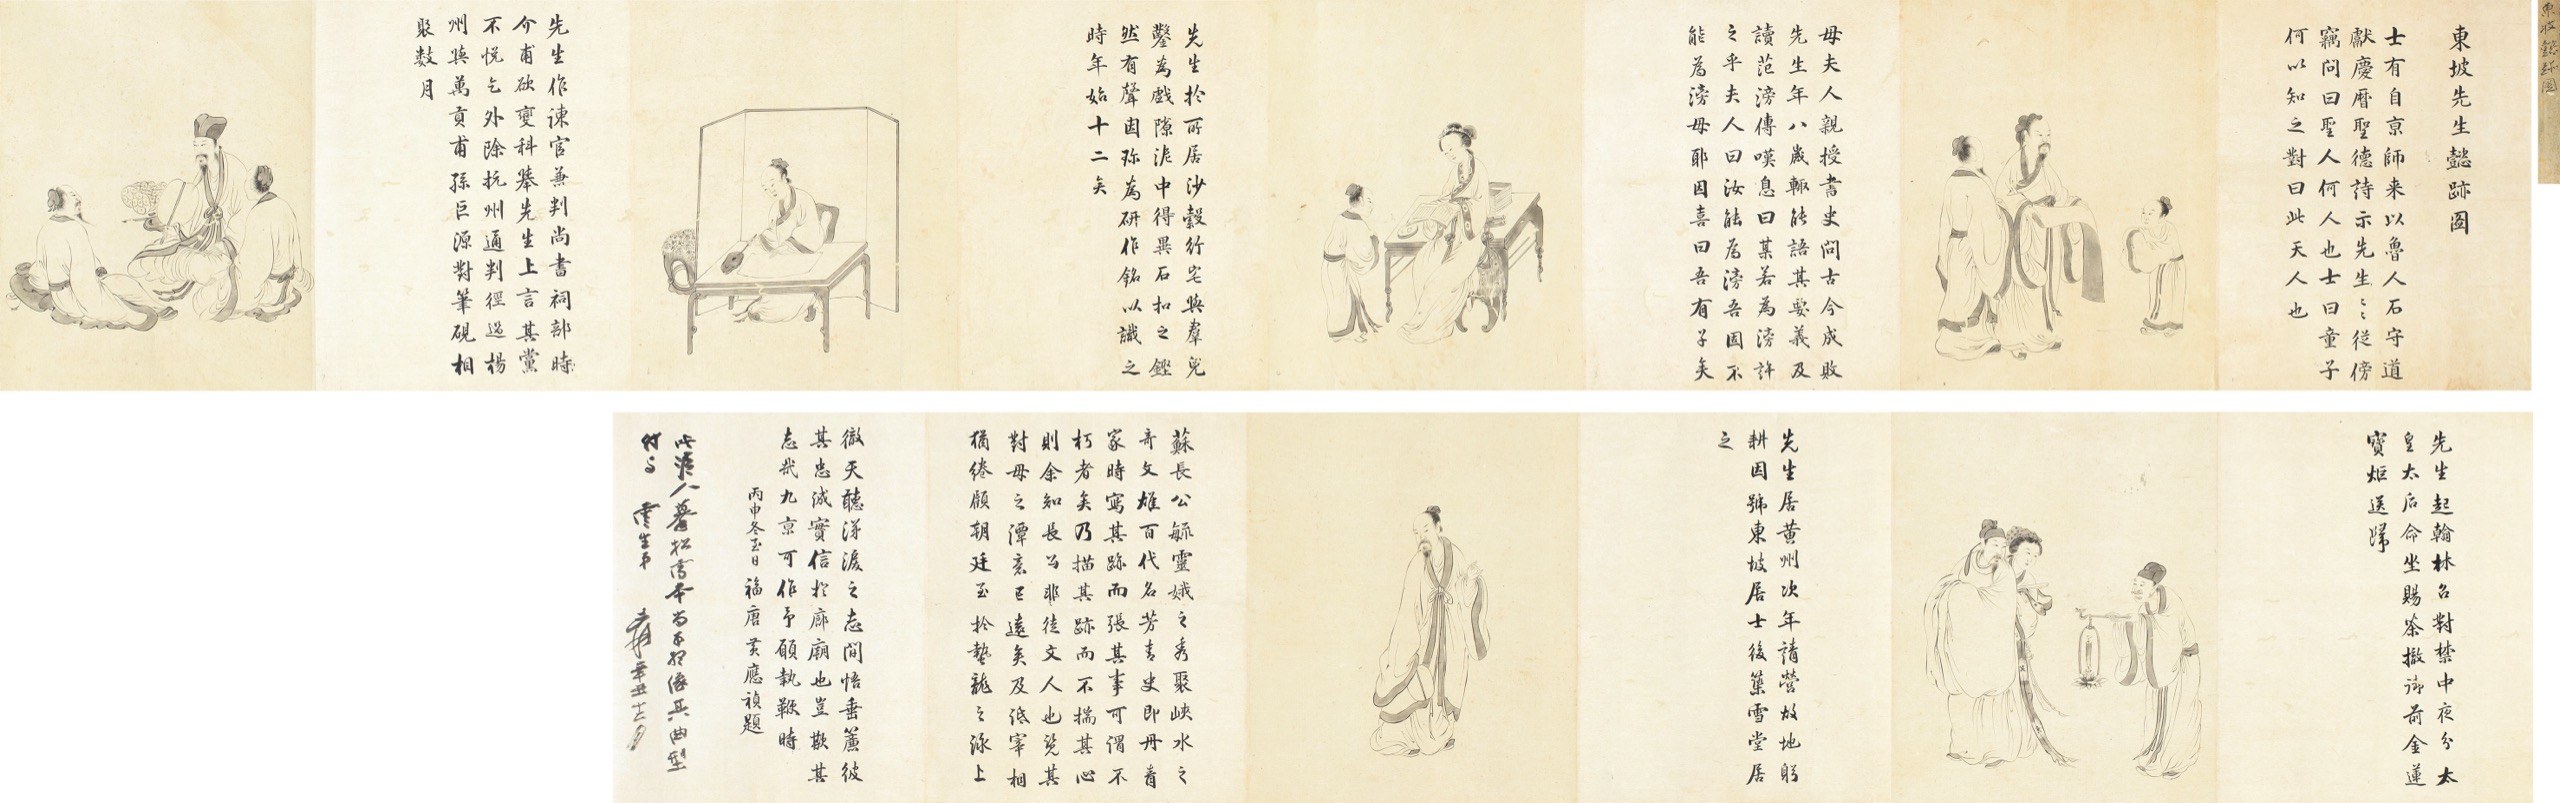 東坡先生懿跡圖
士有自京師来以魯人石守道
獻慶曆聖德詩示先生〻從傍
竊問曰聖人何人也士曰童子
何以知之對曰此天人也
母夫人親授書史問古今成敗
先生年八歲輒能語其要義及
讀范滂傳嘆息曰某若為滂許
之乎夫人曰汝能為滂吾固不
能為滂母耶因喜曰吾有子矣
先生於所居沙縠行宅與羣兒
鑿為戲隙池中得異石扣之鏗
然有聲因琢為研作銘以識之
時年始十二矣
先生作諫官兼判尚書祠部時
介甫欲變科舉先生上言其黨
不悅乞外除杭州通判徑過楊
州與萬貢甫孫巨源對筆硯相
聚数月
先生起翰林召對禁中夜分太
皇太后命坐賜茶撤御前金蓮
寶炬送歸
先生居黃州次年請營故地躬
耕因號東坡居士後築雪堂居
之
蘇長公毓靈娥之秀聚峽水之
奇文雄百代名芳青史即丹青
家時寫其跡而張其事可謂不
朽者矣乃描其跡而不揣其心
則余知長公非徒文人也覽其
對母之譚意已遠矣及伍宰相
猶綣顧朝廷至於蟄龍之詠上
徹天聽涕淚之志間悟垂簾彼
其忠誠實信於廊廟也豈歉其
志哉九京可作予願執鞭時
丙申冬至日福唐黃應禎題
此滬人摹松雪本尚不死優其典型
付与 雲生弟 爰 辛丑十二月
東坡懿跡圖